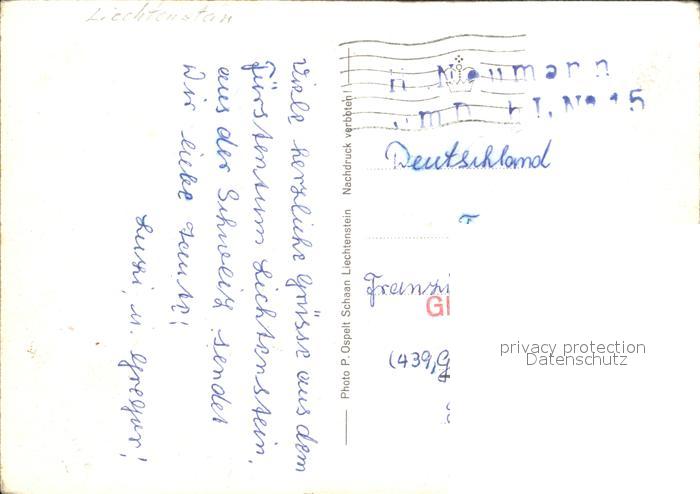 Liechtenstan
Viele herzliche Grüsse aus dem
Fürstentum Lichtenstein.
aus der Schweiz sendet
Dir liebe Tante!
Luzi, u. Gregor!
Photo P. Ospelt Schaan Liechtenstein Nachdruck verboten!
H. Neumann
Deutschland
Franzi
(439,G
privacy protection
Datenschutz